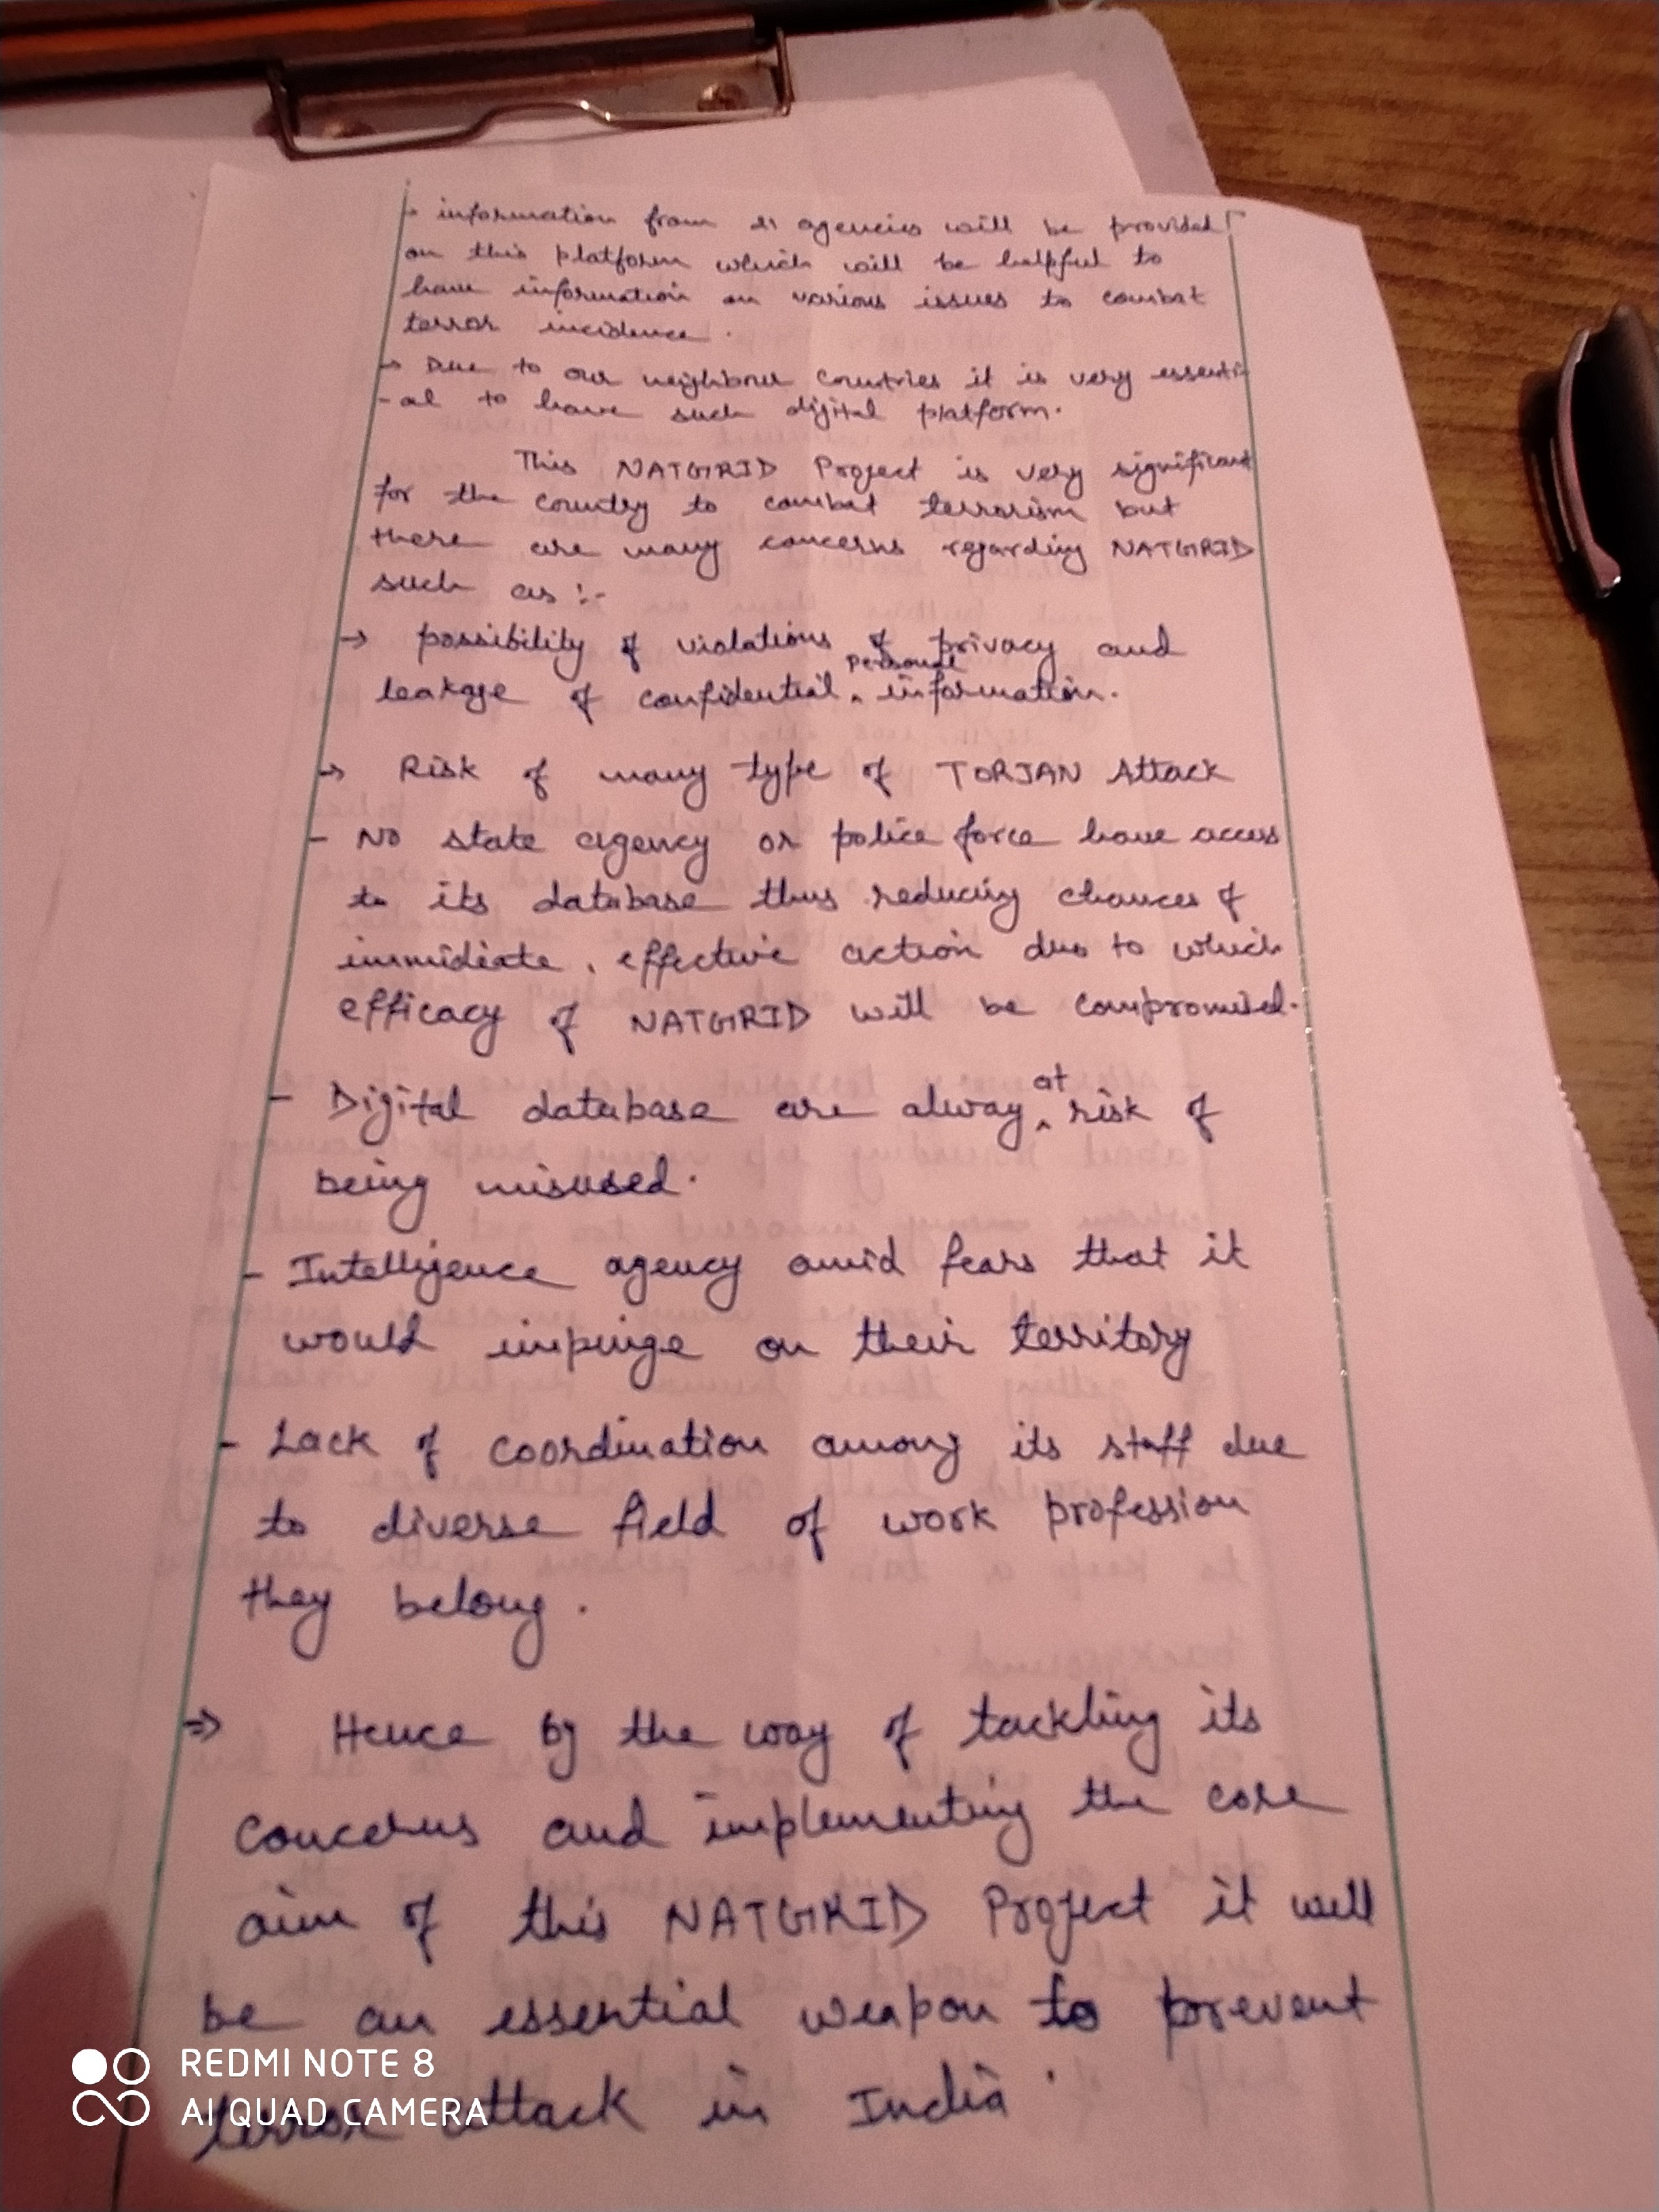 → information from 21 agencies will be provided
on this platform which will be helpful to
have information on various issues to combat
terror incidence.
→ Due to our neighbour countries it is very essenti
-al to have such digital platform.
This NATGRID Project is very significant
for the country to combat terrorism but
there are many concerns regarding NATGRID
such as :-
→ possibility of violations of privacy and
leakage of confidential personal information.
→ Risk of many type of TORJAN Attack
- No state agency or police force have access
to its database thus reducing chances of
immidiate, effective action due to which
efficacy of NATGRID will be compromised.
- Digital database are alway at risk of
being misused.
- Intelligence agency amid fears that it
would impinge on their territory
- Lack of coordination among its staff due
to diverse field of work profession
they belong.
⇒ Hence by the way of tackling its
concerns and implementing the core
aim of this NATGRID Project it will
be an essential weapon to prevent
terror attack in India.
REDMI NOTE 8
AI QUAD CAMERA